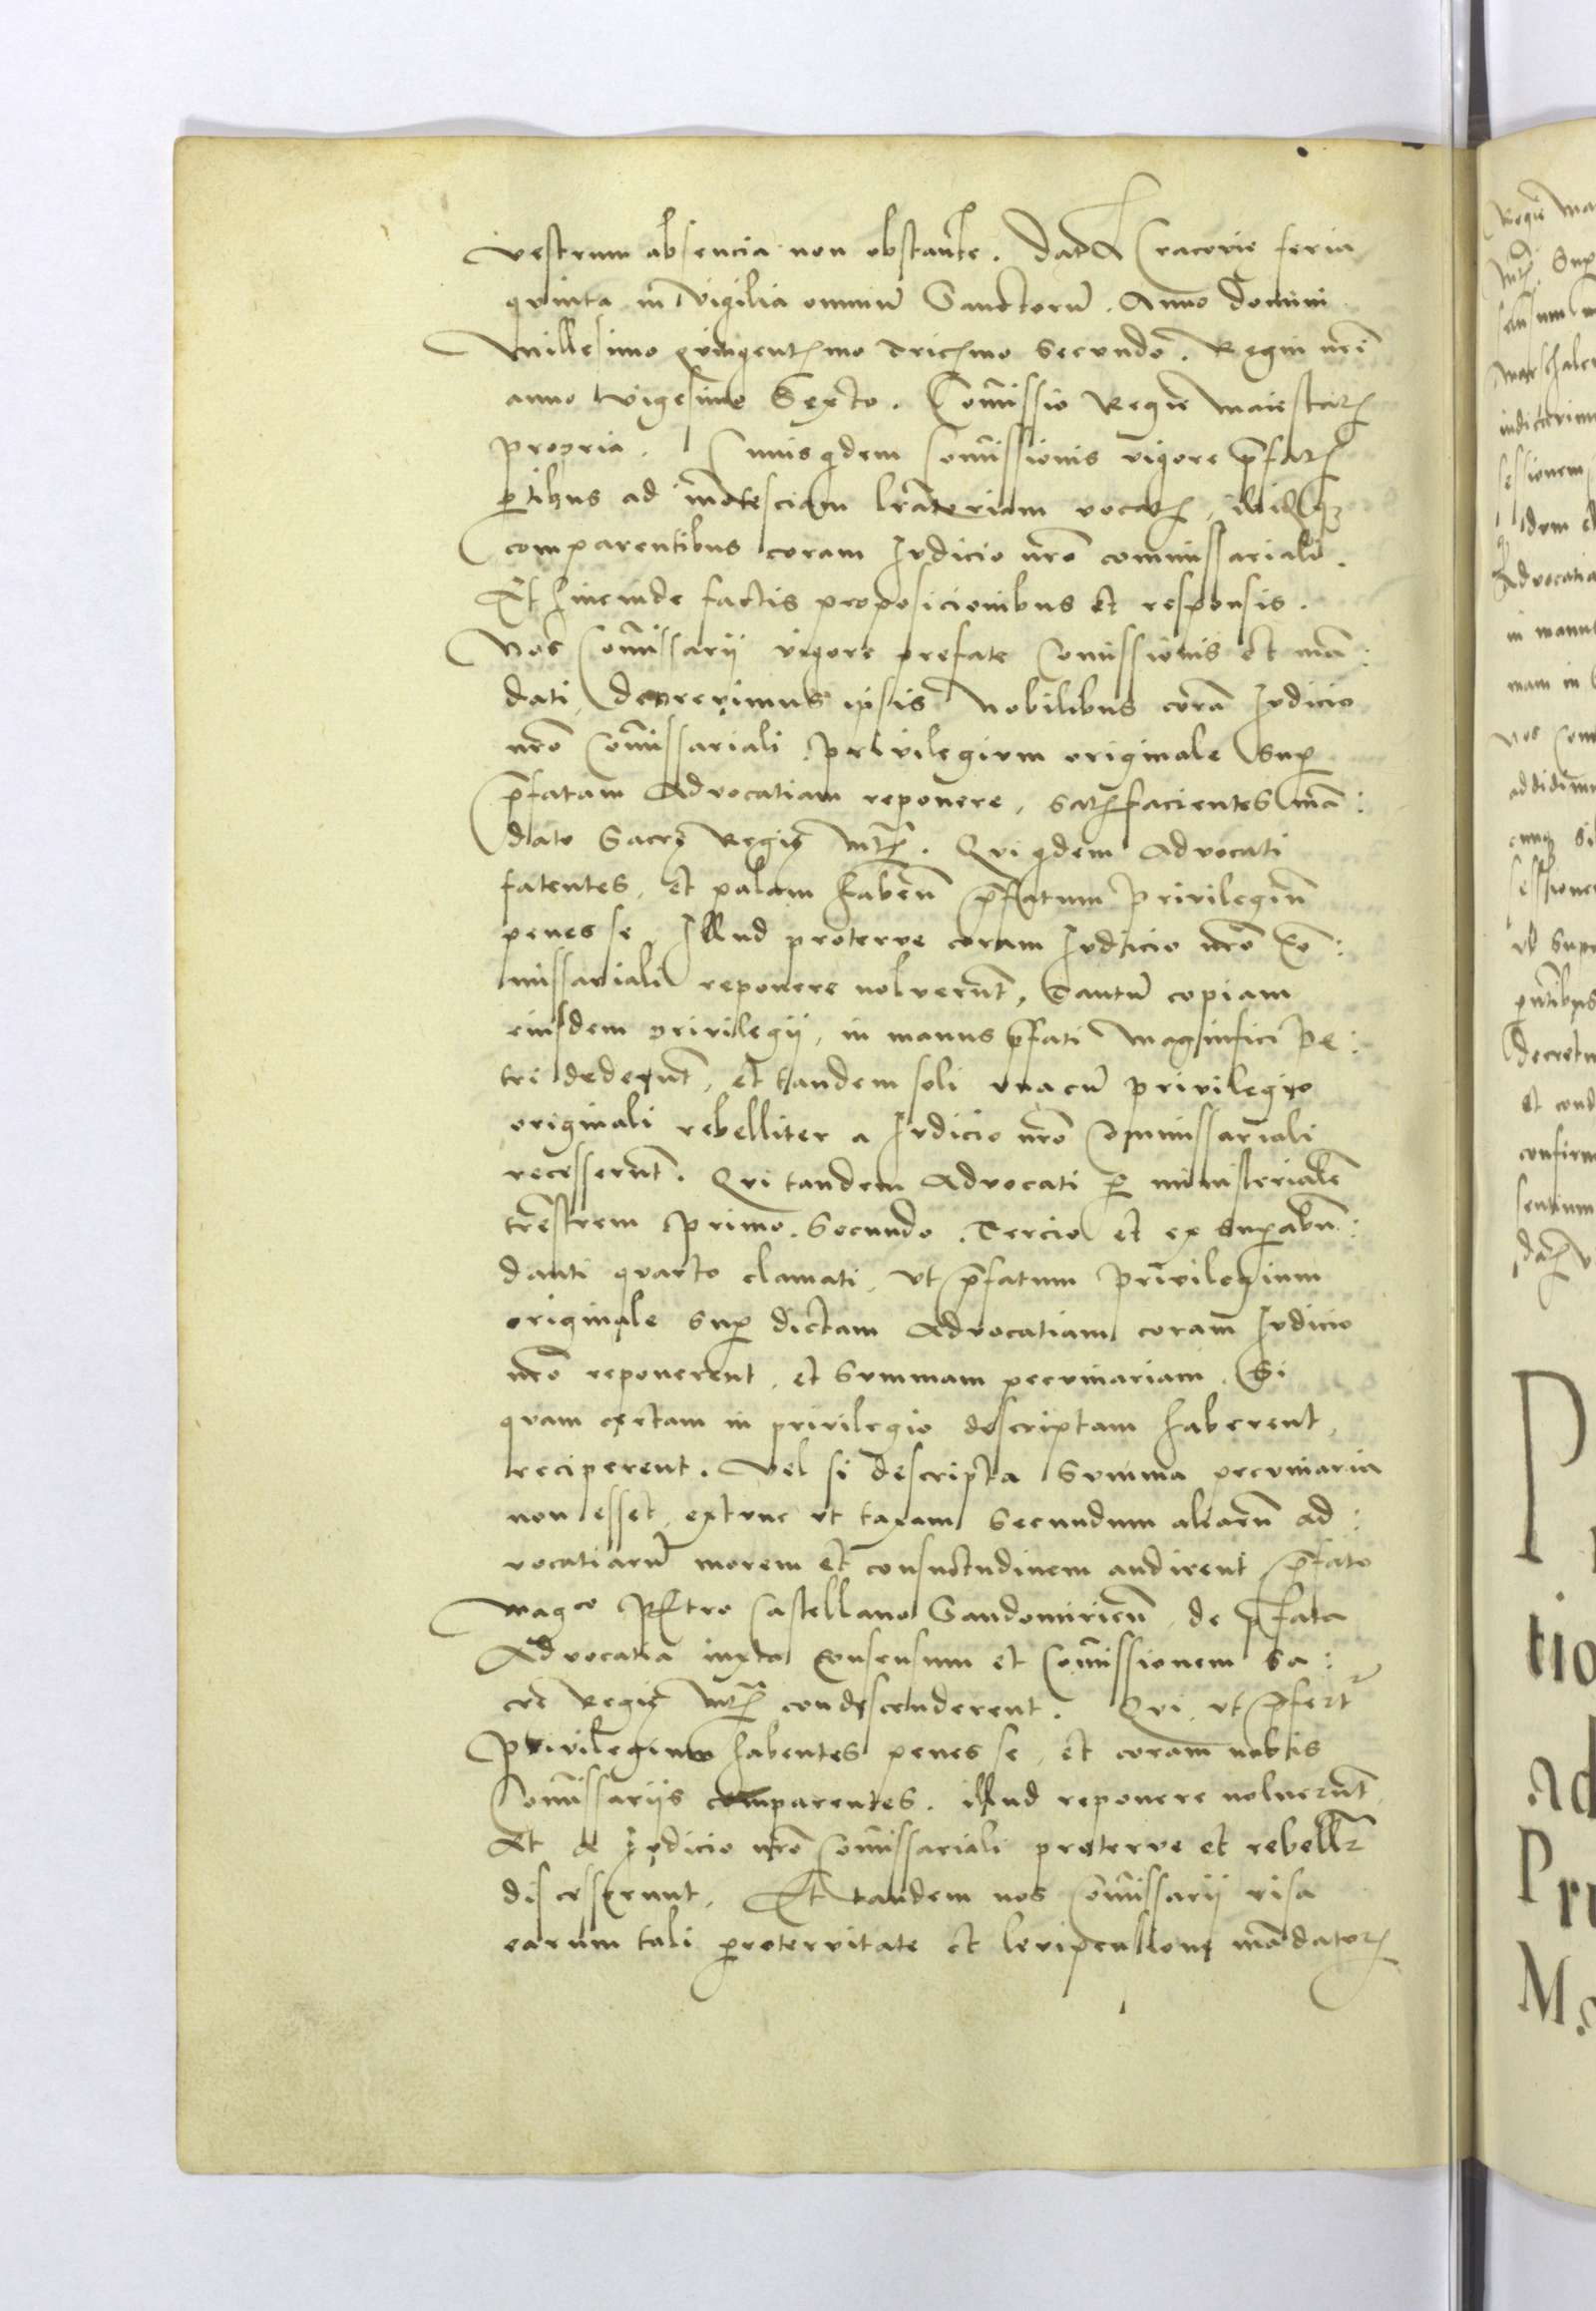 vestrum absencia non obstante. Datȩ Cracovie feria
quinta in vigilia omniū Sanctorū. Anno Domini
Millesimo quingentꝫmo Tricꝫmo Secundo. Regni nr̄i
anno vigesimo Sexto. Com̄issio Regie Maiestatꝫ
propria. Cuius qdem Com̄issionis vigore p̄fatꝫ
ꝑtibus ad lr̄atoriam vocatꝫ, ibidꝫqꝫ
comparentibus coram Iudicio nr̄o commissariali.
Et hincinde factis proposicionibus et responsis.
Nos Com̄issarij vigore prefate Comissionis et mā:
dati, decrevimus ipsis Nobilibus corā Iudicio
nr̄o Com̄issariali. privilegium originale suꝑ
p̄fatam Advocatiam reponere, satꝫfacientes mā:
dato Sacrę Regię Mtꝫ. Qui qdem Advocati
fatentes, et palam haben̄ p̄fatum privilegiū
penes se Illud proterve coram Iudicio nr̄o Cō:
missariali reponere noluerūt, Tantū copiam
eiusdem privilegij, in manus p̄fati Magnifici Pe:
tri dederūt, et tandem soli una cū privilegio
originali rebelliter a Iudicio nr̄o Commissariali
recesserūt. Qui tandem Advocati ꝑ ministerialē
trēstrem primo. Secundo. Tercio et ex suꝑabū:
danti quarto clamati, ut p̄fatum privilegium
originale suꝑ dictam Advocatiam coram Iudicio
nr̄o reponerent, et Summam pecuniariam, Si
quam certam in privilegio descriptam haberent,
reciperent. Vel si descripta Summa pecuniaria
non esset, extunc ut taxam secundum aliarū ad:
vocatiarū morem et consuetudinem audirent p̄fato
Magco Petro Castellano Sandomirien̄, de p̄fata
Advocatia iuxta consensum et Com̄issionem Sa:
cre Regię Mtꝫ condescenderent. Qui ut p̄fert᷑
privilegium habentes penes se, et coram nobis
Com̄issarijs comparentes. illud reponere noluerūt,
Et a Iudicio nr̄o Com̄issariali proterve et rebellr̄
discesserunt. Et tandem nos Com̄issarij visa
earum tali protervitate et levipensione mādatorꝫ